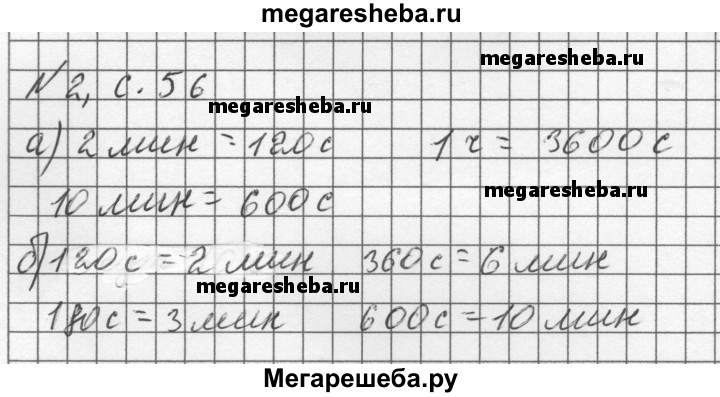 megaresheba.ru
№2, с. 56
megaresheba.ru
megaresheba.ru
а) 2 мин = 120 с 1 ч = 3600 с
10 мин = 600 с
megaresheba.ru
б) 120 с = 2 мин 360 с = 6 мин
megaresheba.ru
180 с = 3 мин 600 с = 10 мин
Мегарешеба.ру